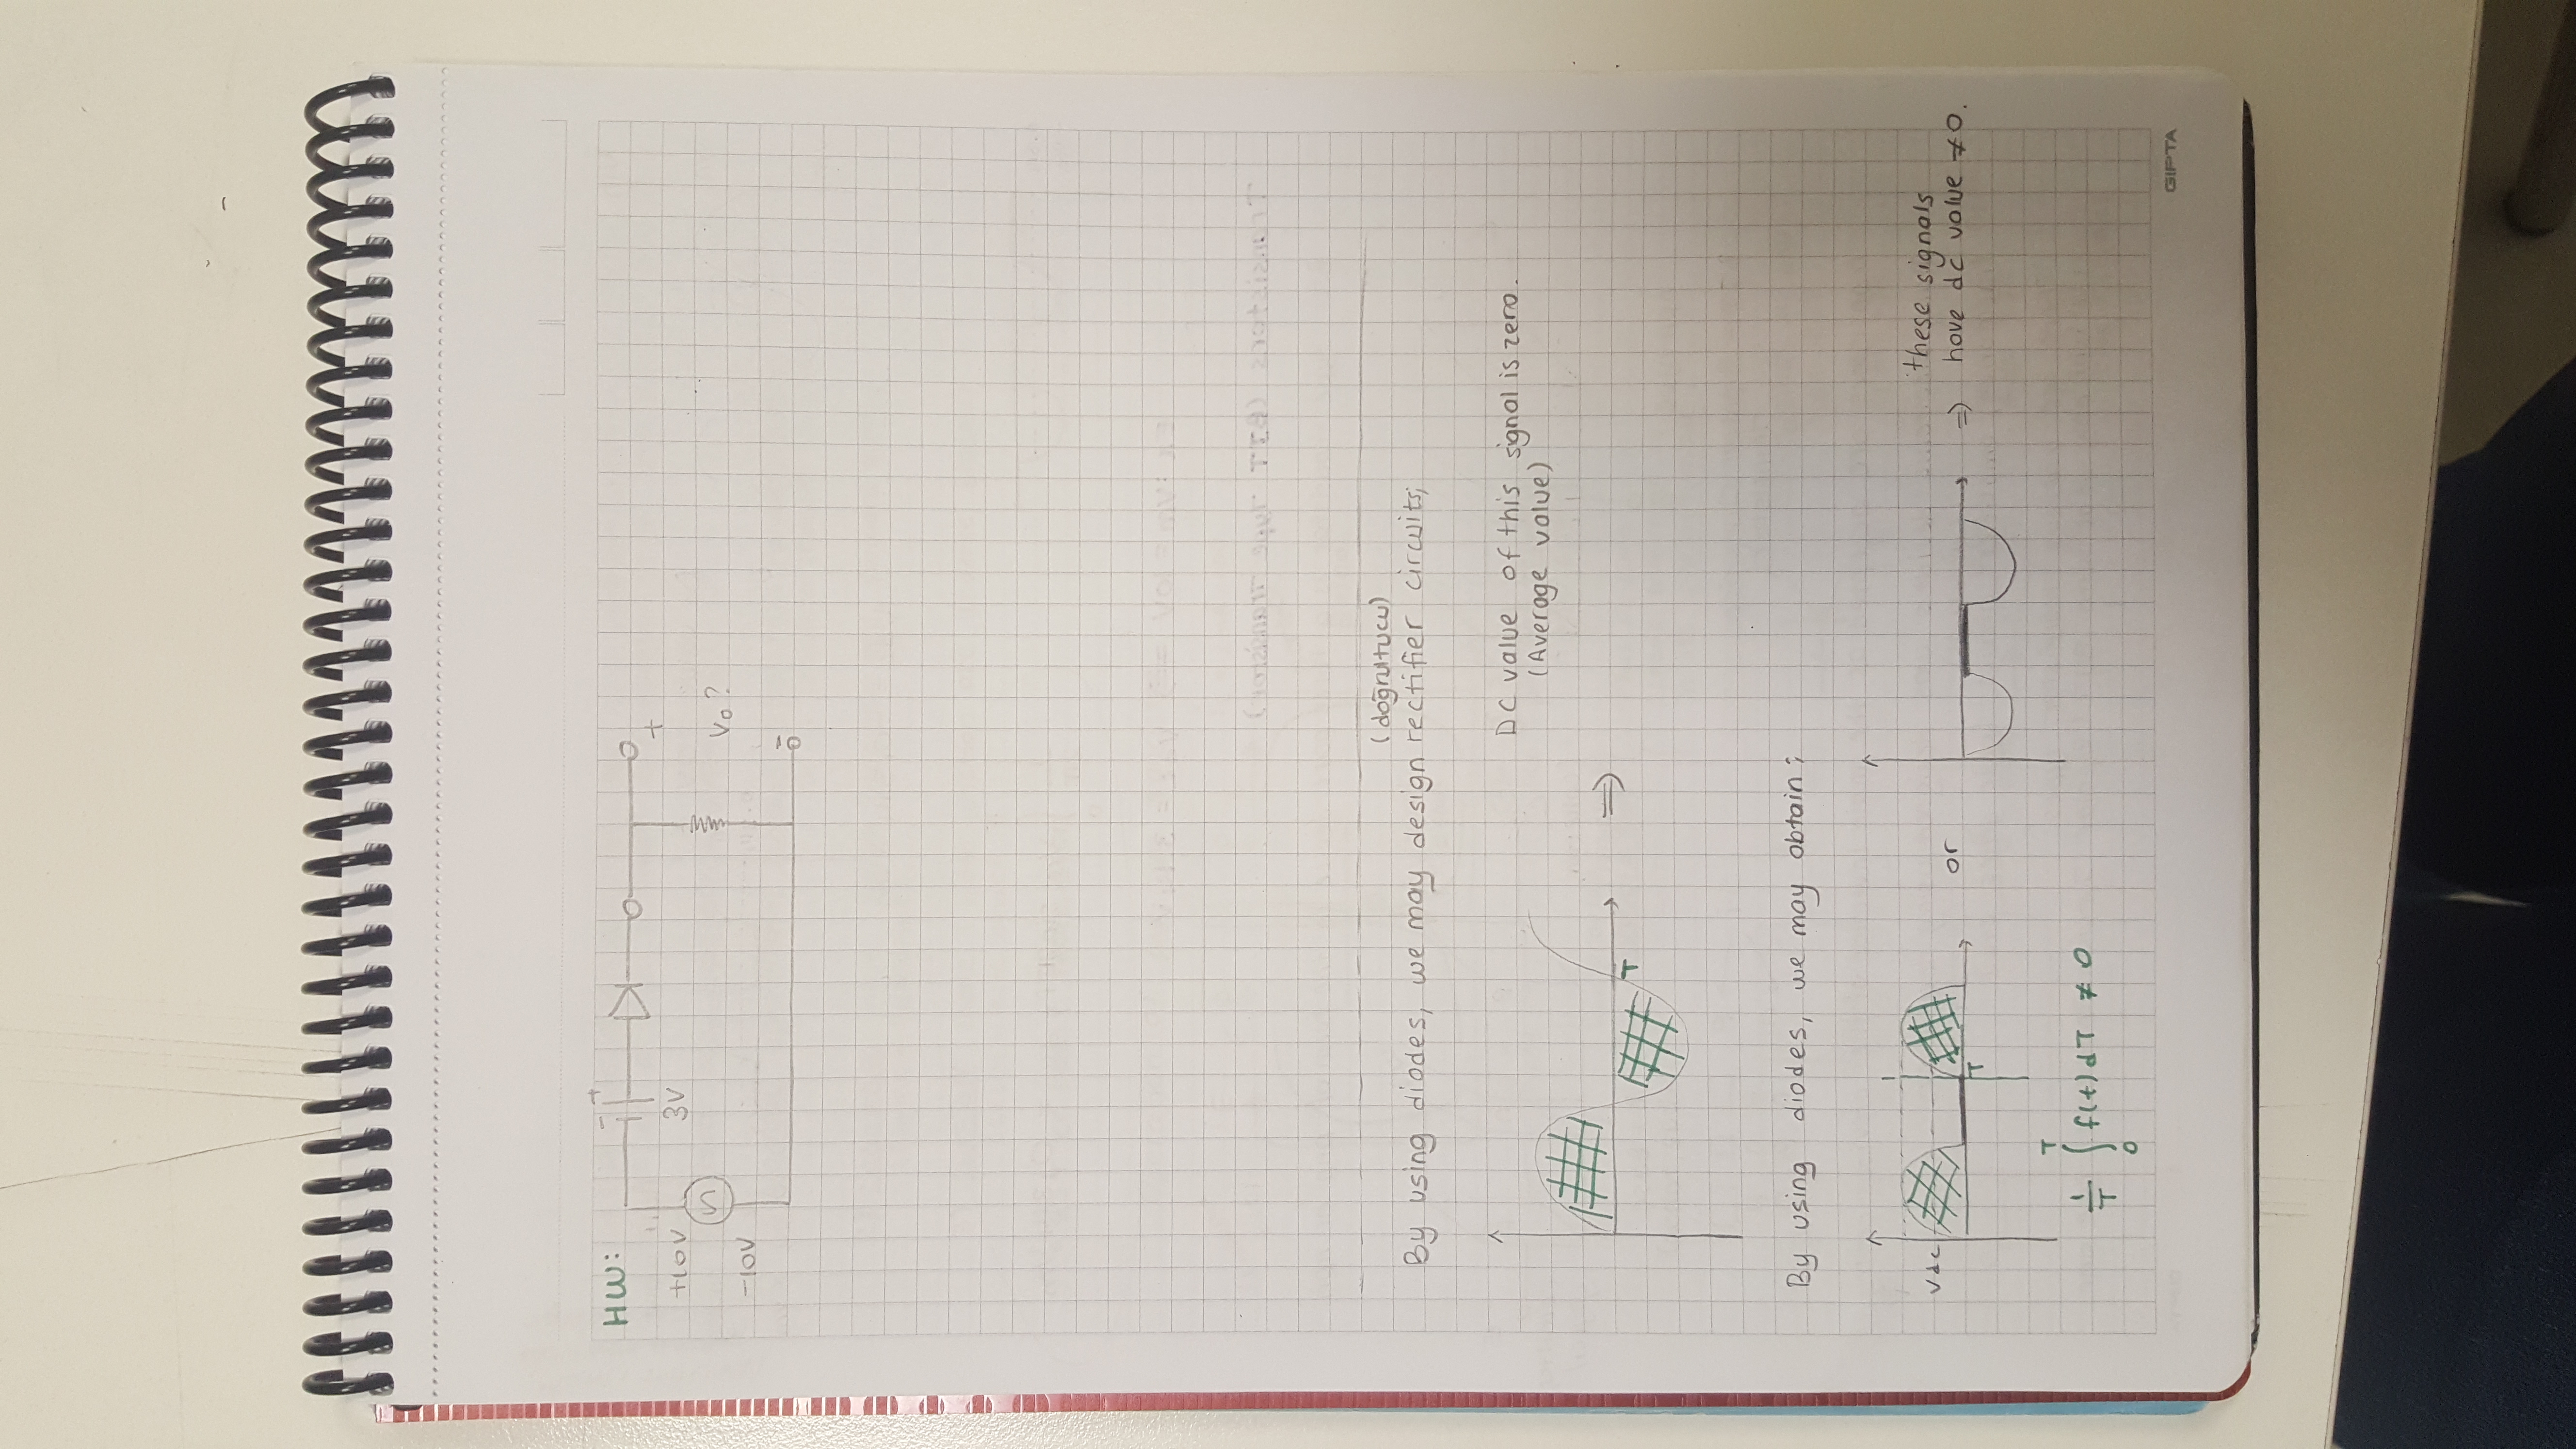 HW:
- +
+10V
3V
-10V
+
Vo?
-
(doğrultucu)
By using diodes, we may design rectifier circuits;
DC value of this signal is zero.
(Average value)
T
⇒
By using diodes, we may obtain;
Vdc
T
or
these signals
⇒ have dc value ≠0.
1/T ∫₀ᵀ f(t)dT ≠ 0
GIPTA